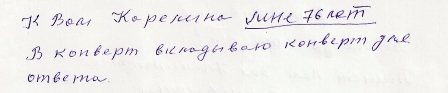 К Вам Карелина мне 76 лет
В конверт вкладываю конверт для
ответа.